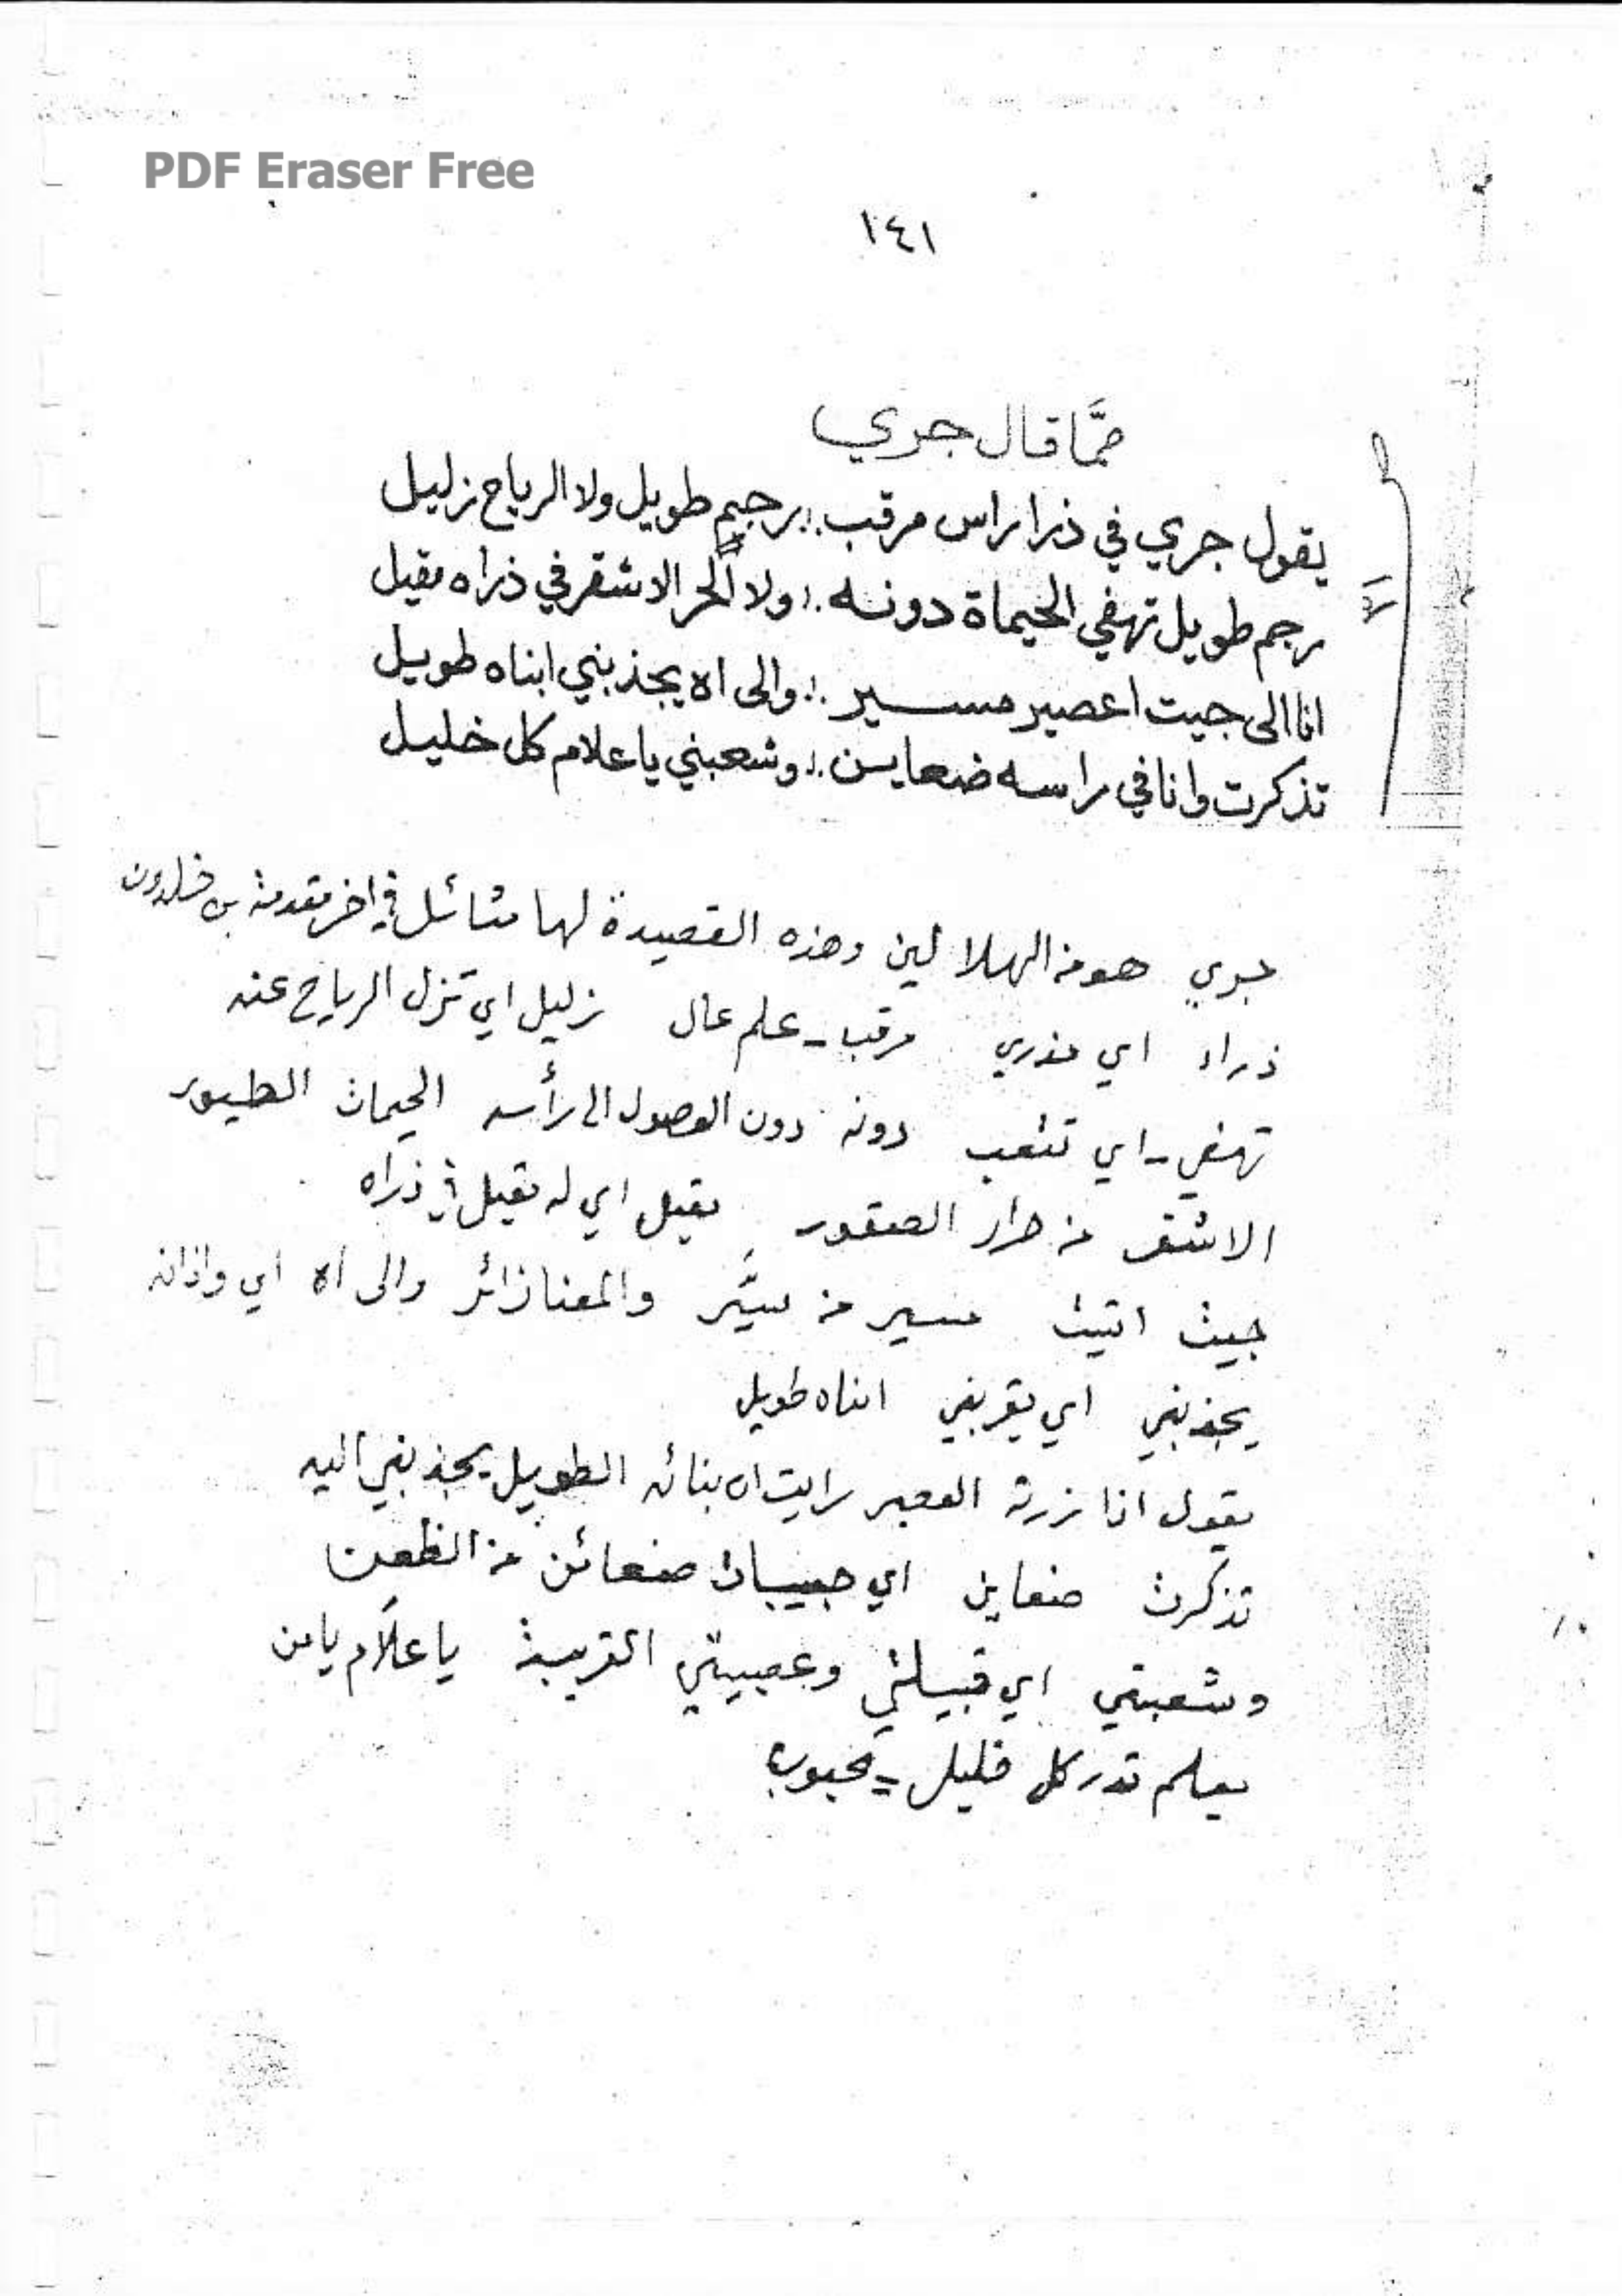 PDF Eraser Free
١٤١
ممَّا قال جري
يقول جري في ذرا راس مرقب ؛ برجم طويل ولا الرياح زليل
رجم طويل تهفي الحيماة دونه ؛ ولا الحر الاشقر في ذراه يقيل
انا الى جيت اعصير مسير ؛ والى اه يجذبني ابناه طويل
تذكرت وانا في راسه ضعاين ؛ وشعبني يا علام كل خليل
جري هو من الهلاليين وهذه القصيدة لها مثائل في اخر مقدمة بن خلدون
ذراه اي مذري مرقب - علم عال زليل اي تزل الرياح عنه
تهفي - اي تتعب دونه دون الوصول الى رأسه الحيمات الطيور
الاشقر من حرار الصقور يقيل اي له مقيل في ذراه
جيت اتيت مسير من سيَّر والمعنا زائر والى اه اي واذانه
يجذبني اي يقربني ابناه طويل
يقول اذا زرت العصير رايت ان بنائه الطويل يجذبني اليه
تذكرت ضعاين اي حبيبات ضعائن من الظعن
وشعبتي اي قبيلتي وعصبيتي القريبة يا علاَّم يا من
يعلم قدر كل خليل = محبوب